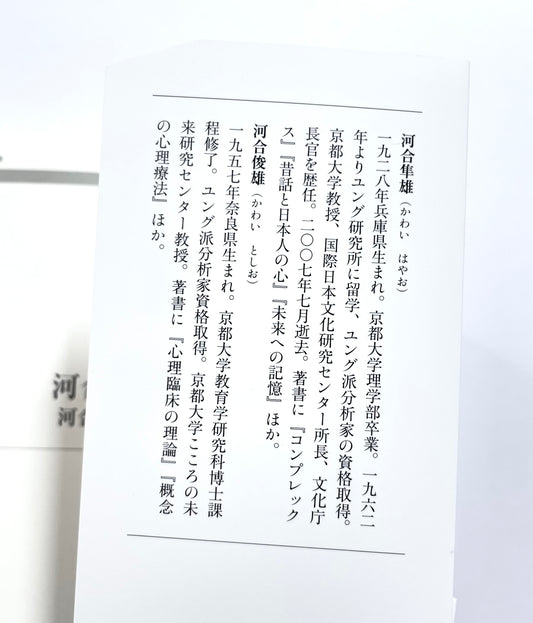 河合隼雄（かわい　はやお）
一九二八年兵庫県生まれ。京都大学理学部卒業。一九六二
年よりユング研究所に留学、ユング派分析家の資格取得。
京都大学教授、国際日本文化研究センター所長、文化庁
長官を歴任。二〇〇七年七月逝去。著書に『コンプレック
ス』『昔話と日本人の心』『未来への記憶』ほか。
河合俊雄（かわい　としお）
一九五七年奈良県生まれ。京都大学教育学研究科博士課
程修了。ユング派分析家資格取得。京都大学こころの未
来研究センター教授。著書に『心理臨床の理論』『概念
の心理療法』ほか。
河合
河合